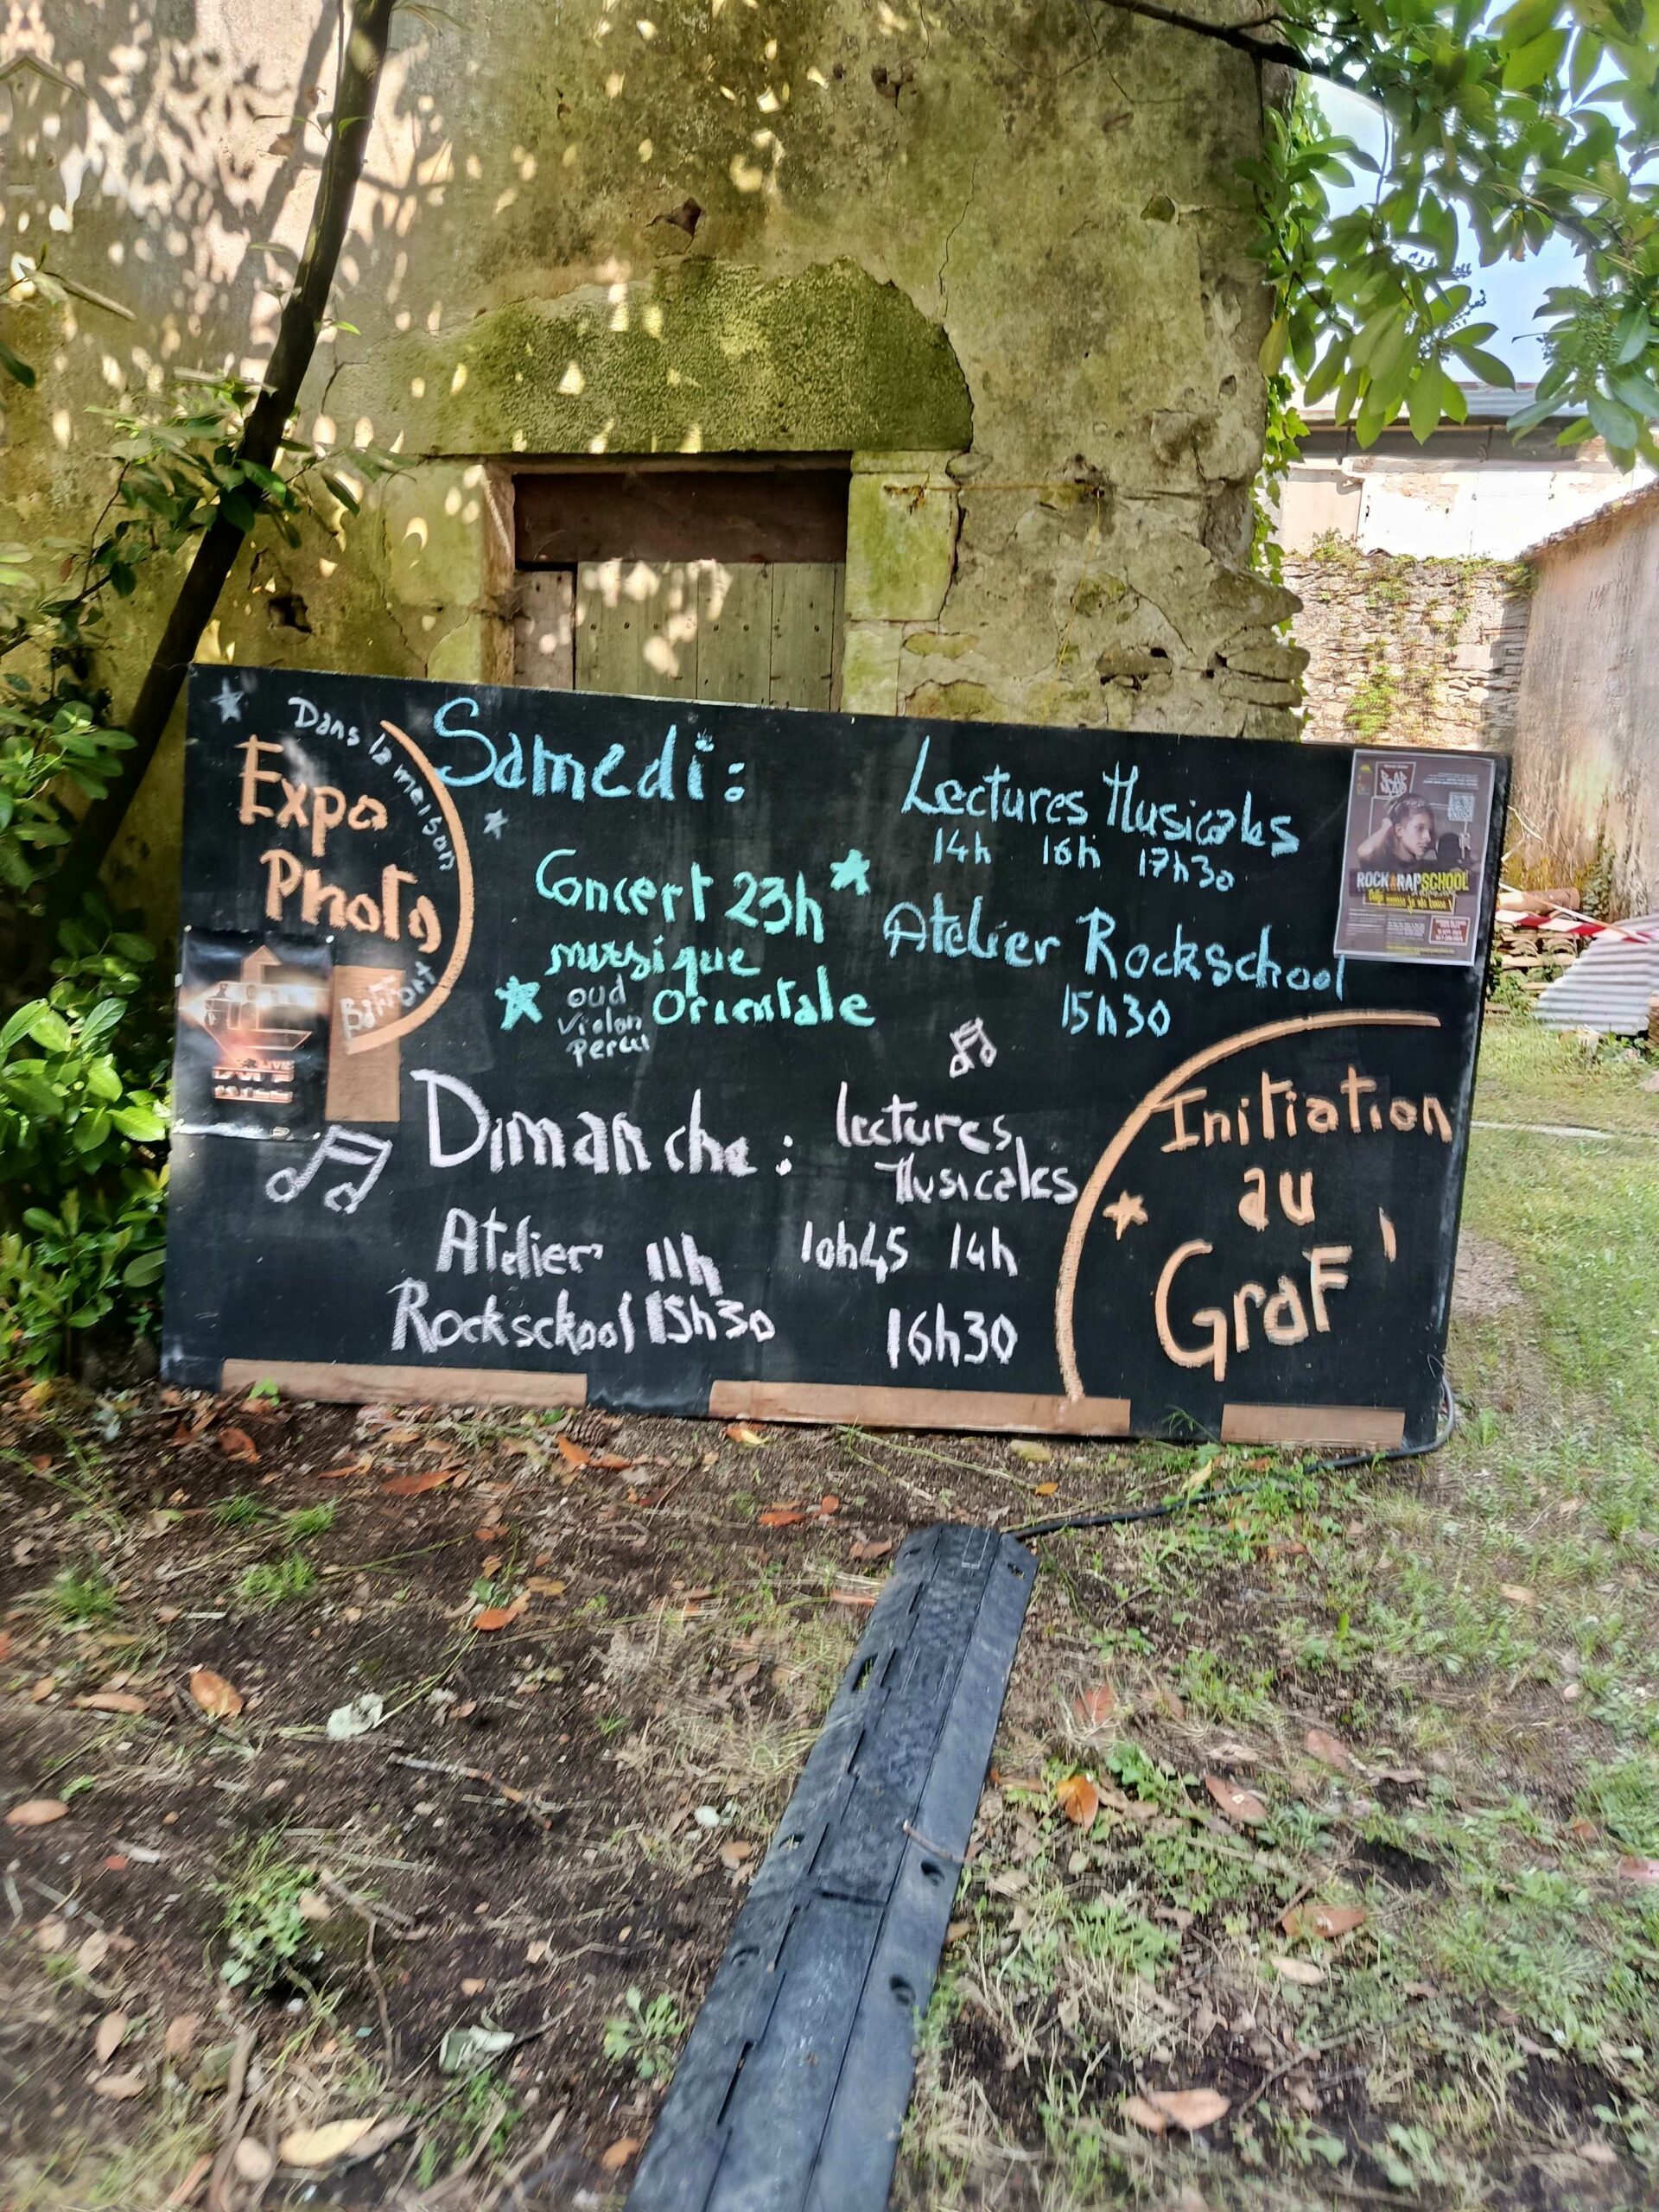 Dans la meison
Expo
Photo
Samedi :
Concert 23h
mussique
Orientale
oud
Violon
percu
Lectures Musicales
14h 16h 17h30
Atelier Rockschool
15h30
ROCK&RAPSCHOOL
Dimanche :
Atelier 11h
Rockschool 15h30
lectures
Musicales
10h45 14h
16h30
Initiation
au
Graf'